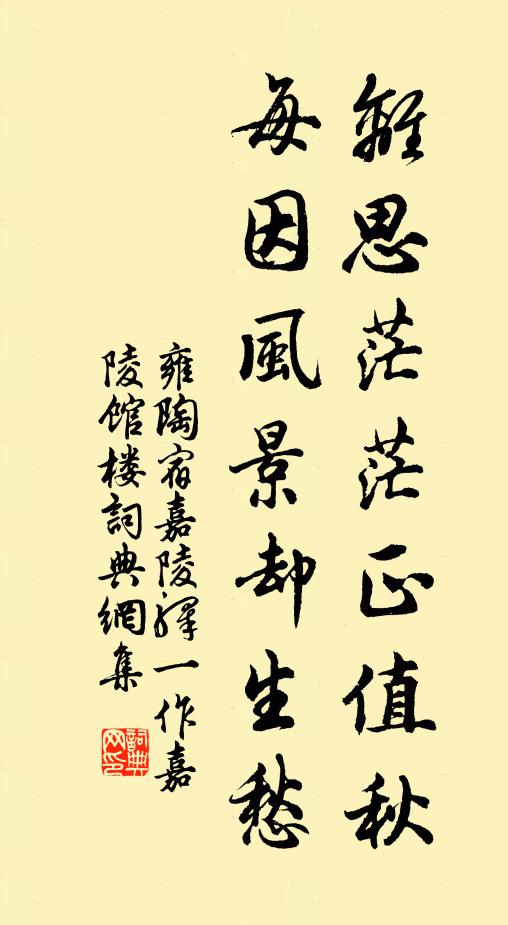 離思茫茫正值秋
每因風景却生愁
雍陶宿嘉陵驛一作嘉
陵館楼詞典網集
詞典
网印